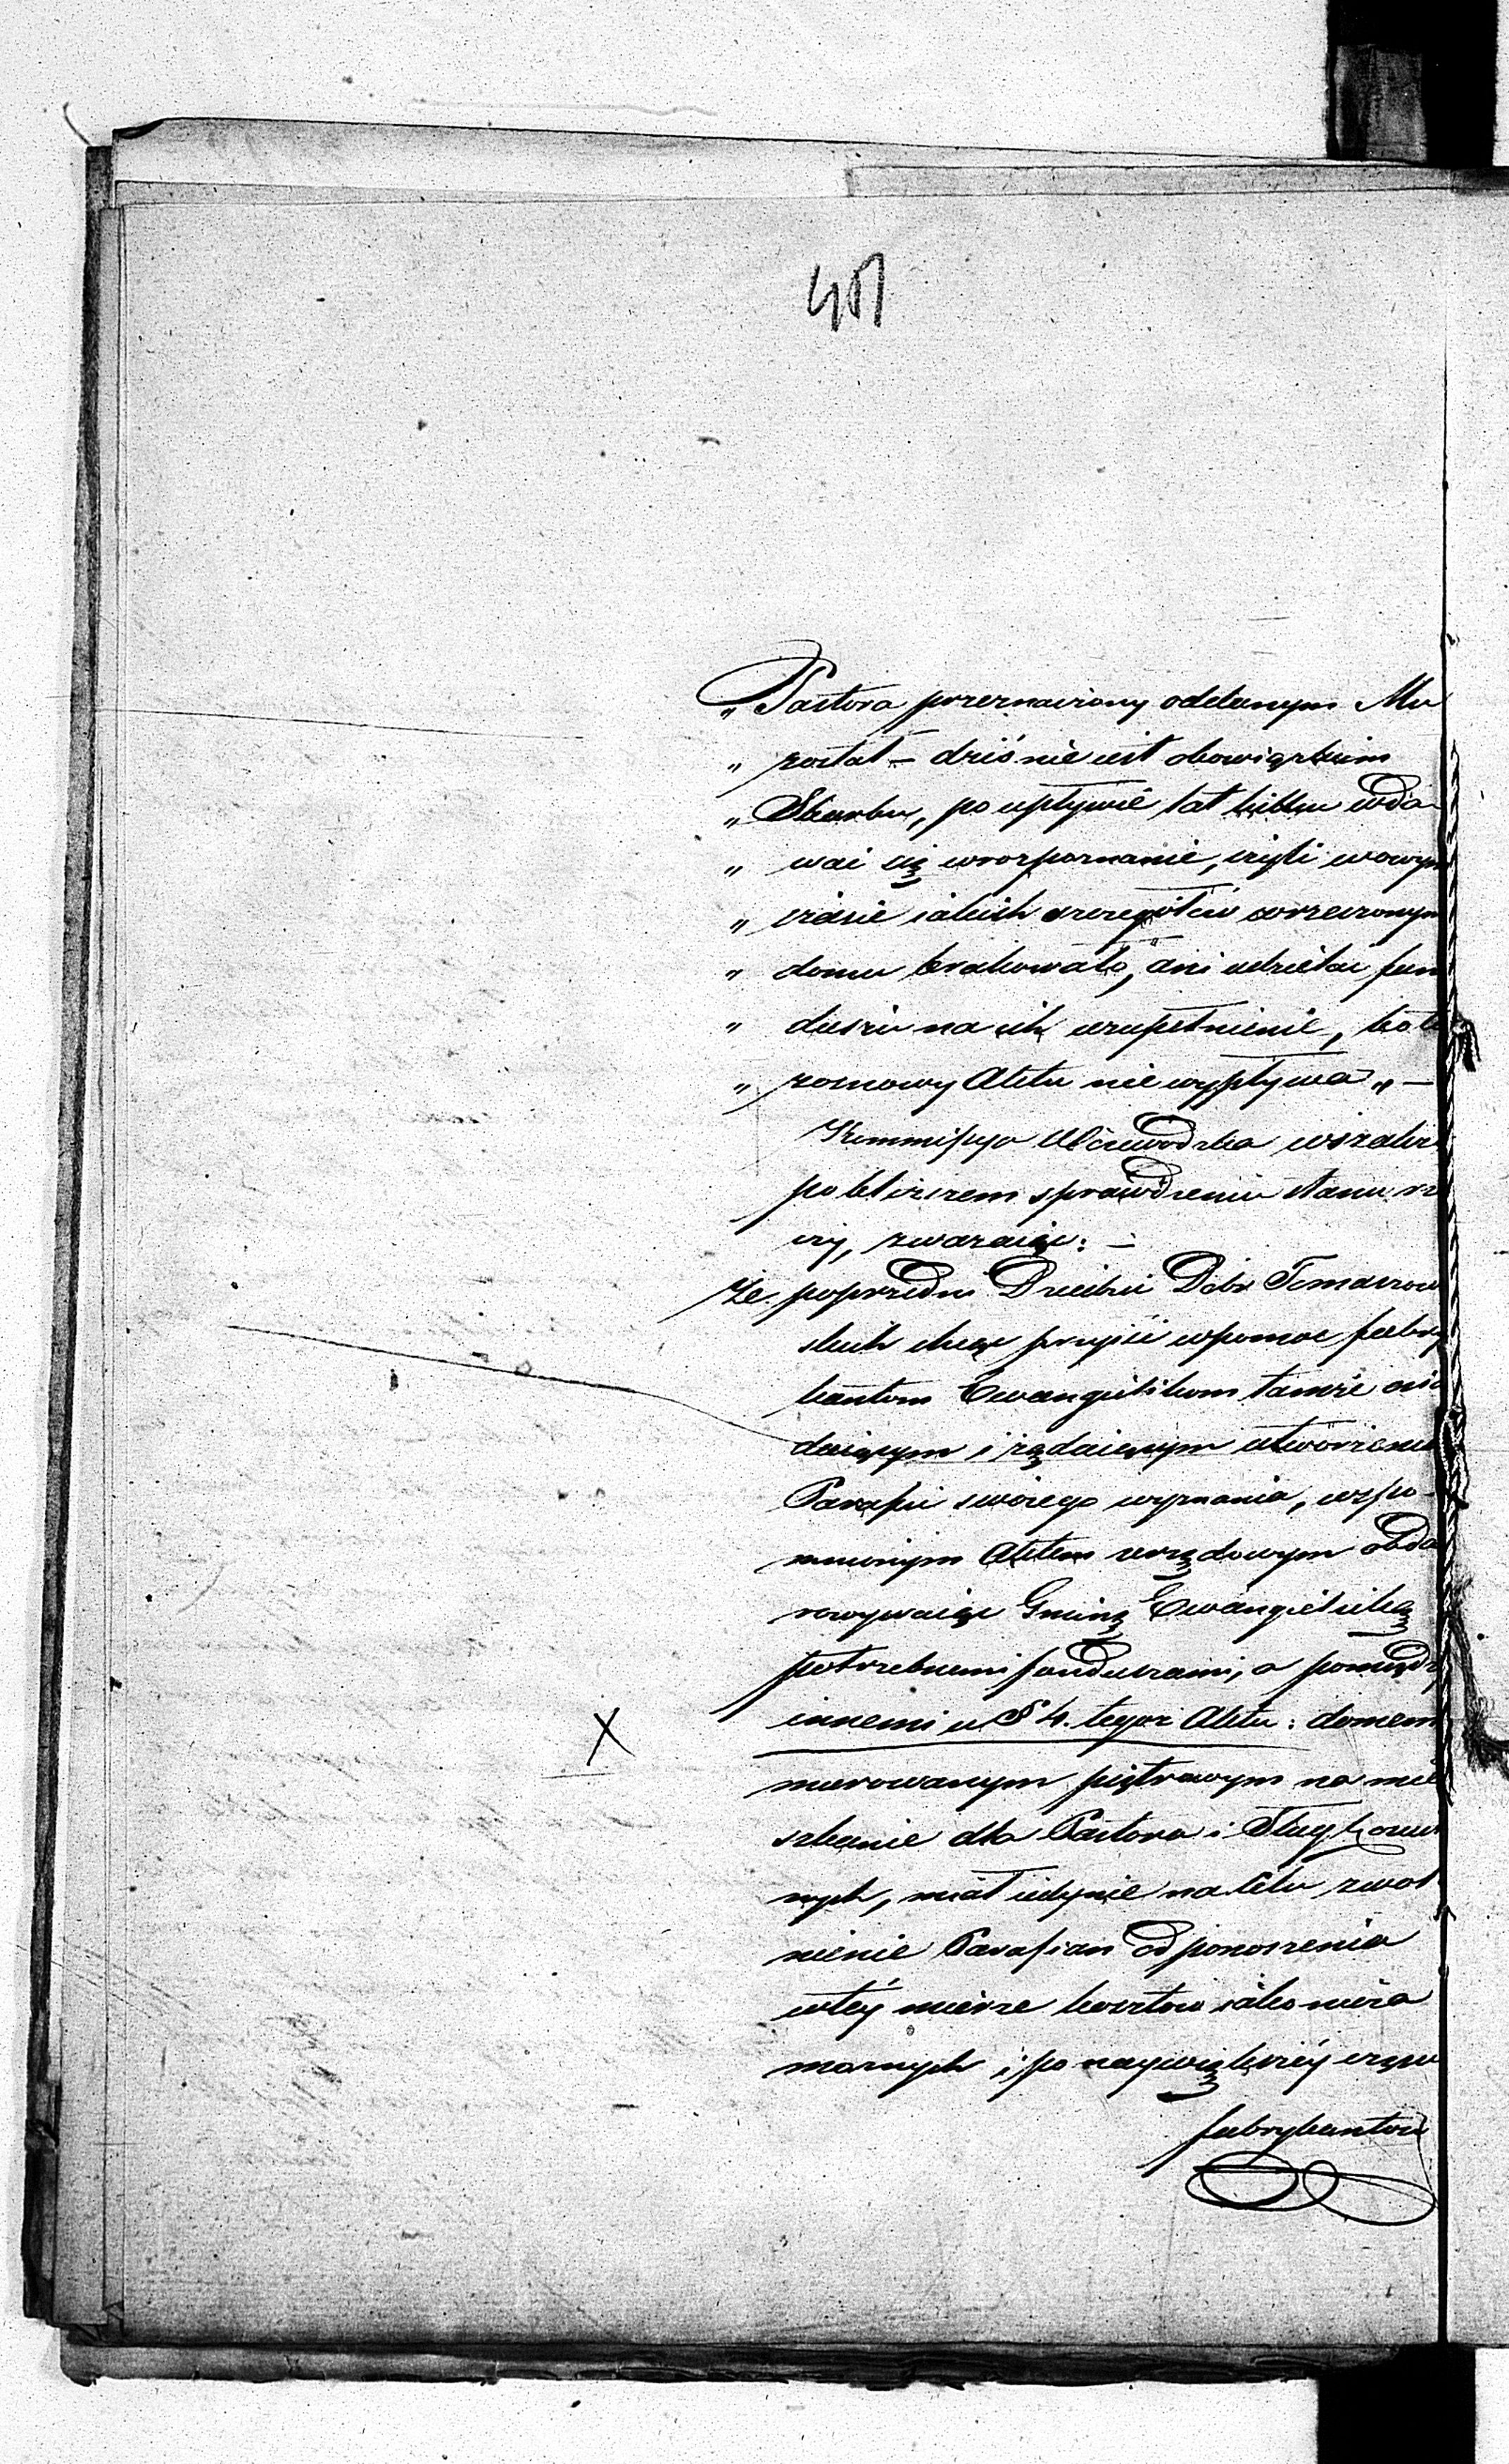 451
„ Pastora przeznaczony oddanym Mu
„ został – dziś nie iest obowiązkiem
„ Skarbu, po upływie lat kilku wda-
„ wać się w rozpoznanie, czyli w owym
„ czasie iakich szczegółów w rzeczonym
„ domu brakowało, ani udzielać fun
„ duszu na ich uzupełnienie, bo to
„ z osnowy Aktu nie wypływa „ –
Kommissya Woiewodzka wszakże
po bliższem sprawdzeniu stanu rze
czy, zważaiąc: –
że. poprzedni Dziedzic Dóbr Tomaszow
skich chcąc przyiść w pomoc fabry
kantom Ewangelikom tamże osia
daiącym i żądaiącym utworzenia
Parafii swoiego wyznania, wspo-
mnionym Aktem urzędowym obda
rowywaiąc Gminę Ewangelicką
potrzebnemi funduszami, a pomiędzy
innemi w § 4. tegoż Aktu: domem
X
murowanym piętrowym na mie
szkanie dla Pastora i Sług
nych, miał iedynie na celu zwol
nienie Parafian od ponoszenia
w téy mierze kosztów iako nieza
możnych i po naywiększéy części
fabrykantów